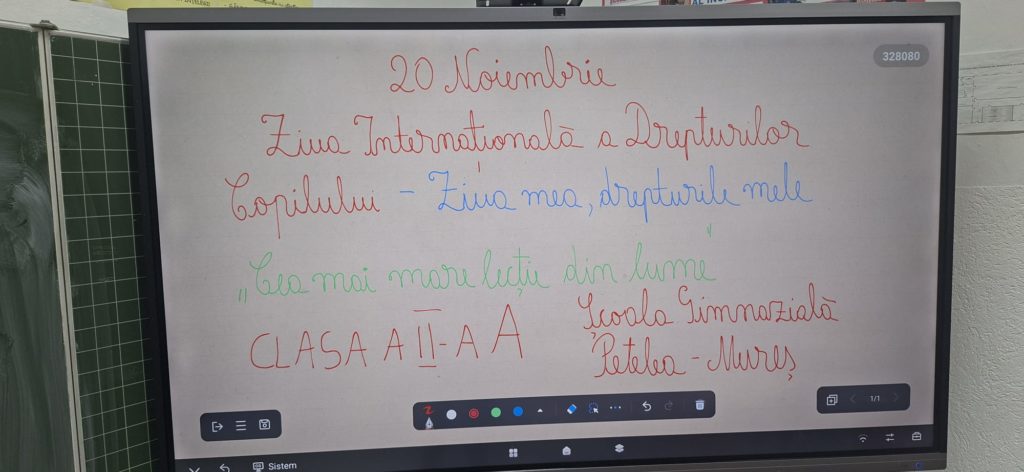 328080
20 Noiembrie
Ziua Internațională a Drepturilor
Copilului - Ziua mea, drepturile mele
„Cea mai mare lecție din lume”
CLASA A II-A A
Școala Gimnazială
Petelea - Mureș
1/1
Sistem